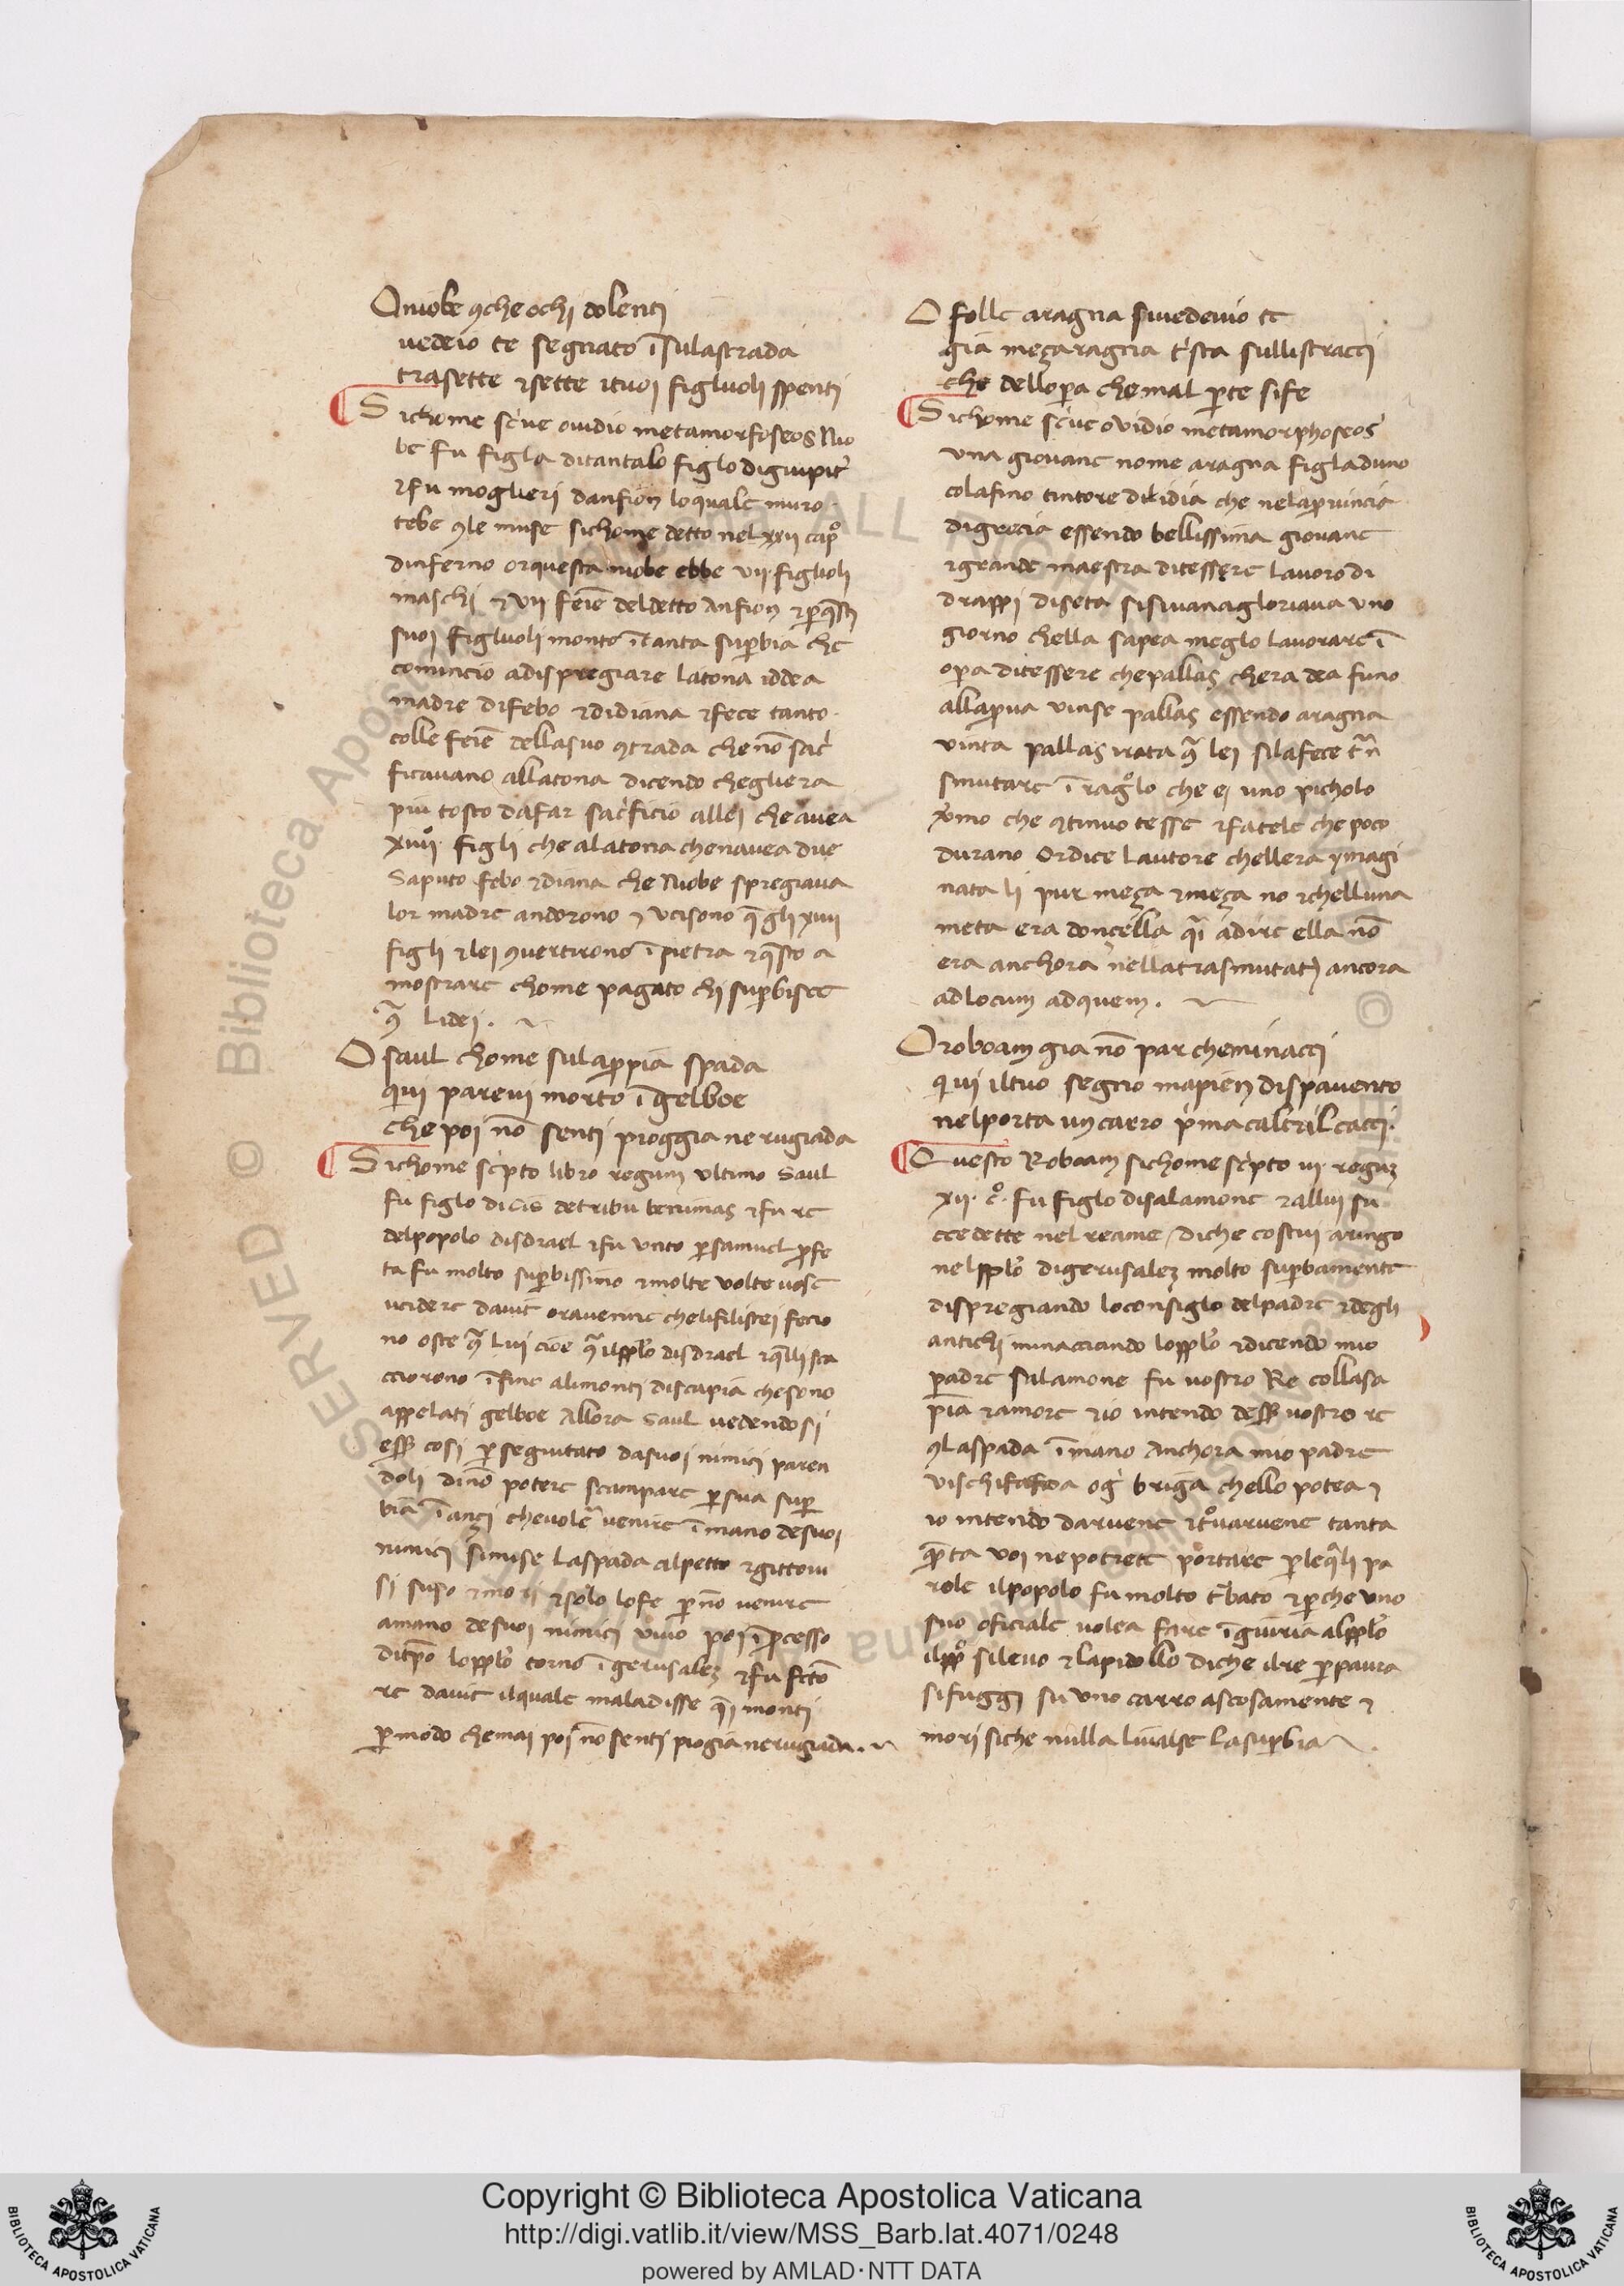 O niobe 9che ochi dolenti
uedeio te segnato ī sulastrada
trasette ꝛsette ituoi figluoli spenti
Sichome sc'ue ouidio metamorfoseos Nio
be fu figla ditantalo figlo digiupit'
ꝛfu moglieri danfion loquale muro
tebe 9le muse sichome detto nel xxii capº
dinferno orquesta niobe ebbe vii figluoli
maschi ꝛ vii feīe deldetto Anfion ꝛ ꝑq̄sti
suoi figluoli monto ītanta suꝑbia che
comincio adispregiare latona iddea
madre difebo ꝛdidiana ꝛfece tanto
colle feīe dellasuo 9trada che nō sac'
ficauano allatona dicendo chegliera
piu tosto dafar sac'ficio allei cheauea
xiiiiº figli che alatona chenauea due
Saputo febo ꝛdiana che Niobe spregiaua
lor madre andorono ꝛ ucisono q̄gli xiiii
figli ꝛlei 9uertirono ī pietra ꝛq̄sto a
mostrare chome pagato chi suꝑbisce
9ͣ lidei.
O saul chome sulaꝓpia spada
qui pareui morto ī gelboe
che poi nō senti pioggia ne rugiada
Sichome sc'pto libro regum ultimo Saul
fu figlo di Cis detribu beniinas ꝛfu re
delpopolo disdrael ꝛfu unto ꝑsamuel ꝓfe
ta fu molto suꝑbissimo ꝛmolte uolte uose
ucidere dauit orauenne chelifilistei fecio
no oste 9ͣ lui cioe 9ͣ ilpplō disdrael ꝛq̄lli sca
cciorono īfino alimonti discupia chesono
appelati gelboe Allora Saul uedendosi
ess̄ cosi ꝑseguitato dasuoi nimici paren
doli dinō potere scampare ꝑsua suꝑ
bia īanzi cheuolē uenire īmano desuoi
nimici simise laspada alpetto ꝛgittoui
si suso ꝛmori ꝛsolo lofe ꝑnō uenire
amano desuoi nimici uiuo poi īꝓcesso
ditꝑo lopplō torno ī gerusalez ꝛfu fcto
re dauit ilquale maladisse q̄i monti
ꝑmodo chemai poi nō senti piogia nerugiada.
O folle aragna siuedeuio te
gia meçaragna t'sta sullistracci
che dellopa chemal ꝑte sife
Sichome sc'ue ovidio metamorphoseos
una giouane nome aragna figladuno
colafino tintore dilidia che nelaꝓuincia
digrecia essendo bellissima giouane
ꝛgrande maestra ditessere lauoro di
drappi diseta sisiuanagloriaua uno
giorno chella sapea meglo lauorare ī
opa ditessere chepallas chera dea fūno
allaꝓua uinse pallas essendo aragna
uinta pallas irata 9ͣ lei silafece t̄n
smutare ī ragºlo che e uno picholo
v'mo che 9tinuo tesse ꝛfatele che poco
durano Ordice lautore chellera ymagi
nata li pur meça ꝛmeça no ꝛchelluna
meta era doncella q̄i adire ella nō
era anchora nellatrasmutat) ancora
adlocum adquem.
O roboam gia nō par cheminacci
qui iltuo segno mapien dispauento
nelporta un carro p'ma calt'il cacci.
Questo Roboam sichome sc'pto iii reguz
xii. cº. fu figlo disalamone ꝛallui su
ccedette nel reame / diche costui aringo
nelpplō digerusalez molto suꝑbamente
dispregiando loconsiglo delpadre ꝛdegli
antichi minacciando lopplō ꝛdicendo mio
padre salamone fu uostro Re collasa
pīa ꝛamore ꝛio intendo dess̄ uostro re
9laspada īmano Anchora mio padre
uischifafaa og' briga chello potea ꝛ
io intendo daruene ꝛt'ºuaruene tanta
q̄ta uoi ne potrete portare ꝑleq̄li pa
role ilpopolo fu molto t'bato ꝛꝑche uno
suo oficiale uolea fare īgiuria alpplō
ilppº sileuo ꝛlapidollo diche ilre ꝑpaura
sifuggi su uno carro ascosamente ꝛ
mori siche nulla liualse lasuꝑbia
Copyright © Biblioteca Apostolica Vaticana
http://digi.vatlib.it/view/MSS_Barb.lat.4071/0248
powered by AMLAD·NTT DATA
BIBLIOTECA APOSTOLICA VATICANA
BIBLIOTECA APOSTOLICA VATICANA